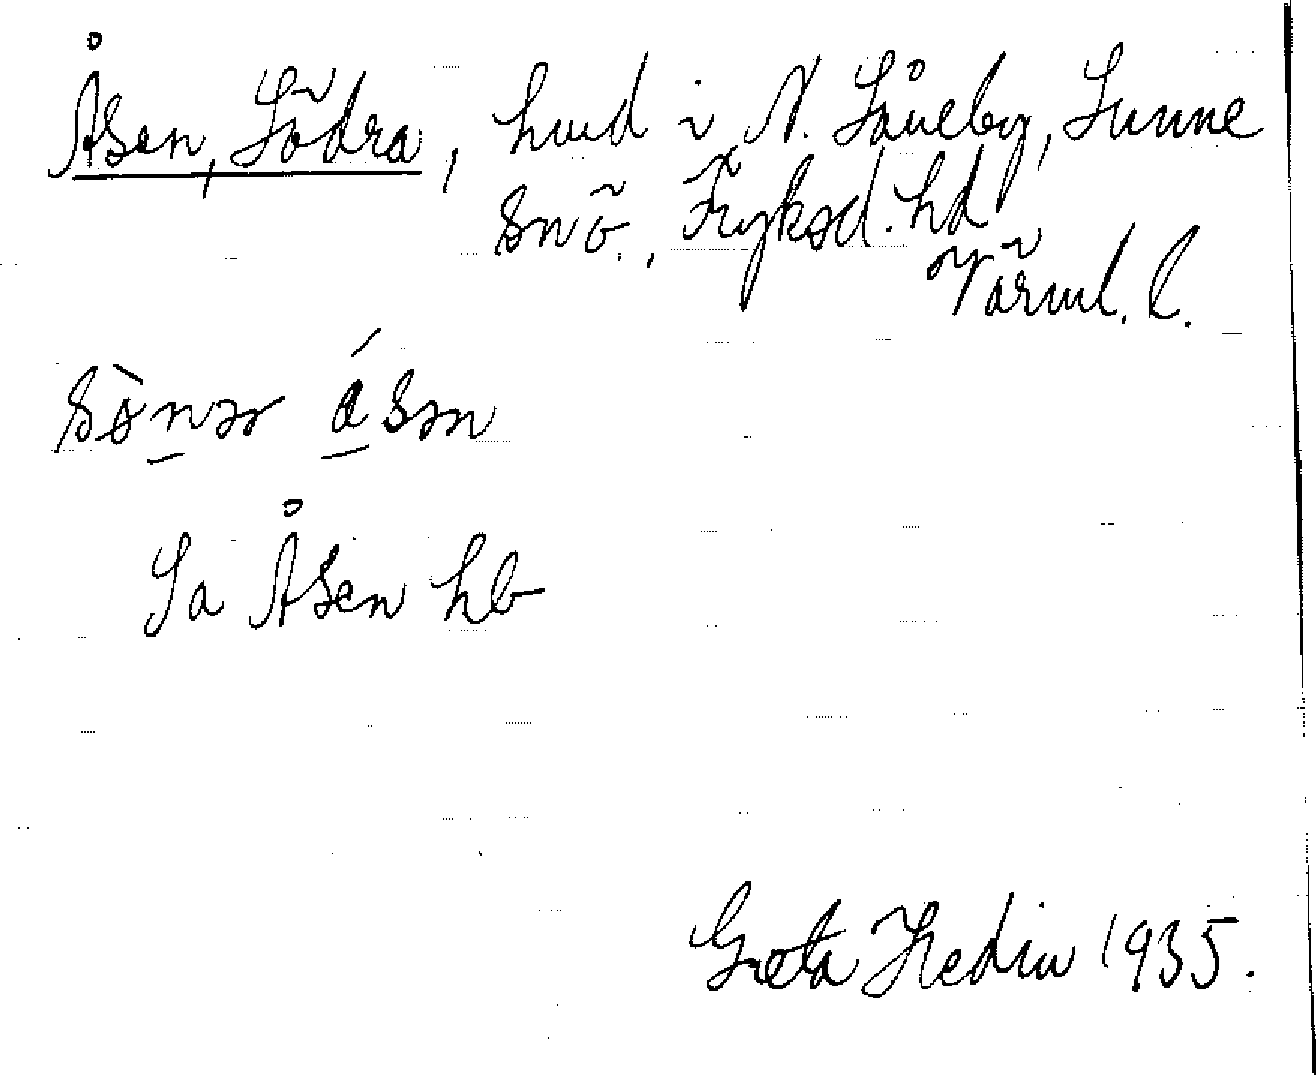 Åsen, Södra, hmd i N. Såneby, Sunne
snö., Fryksd. hd
Värml. l.
sö̀nər åsən
Sa Åsen hb
Greta Hedin 1935.